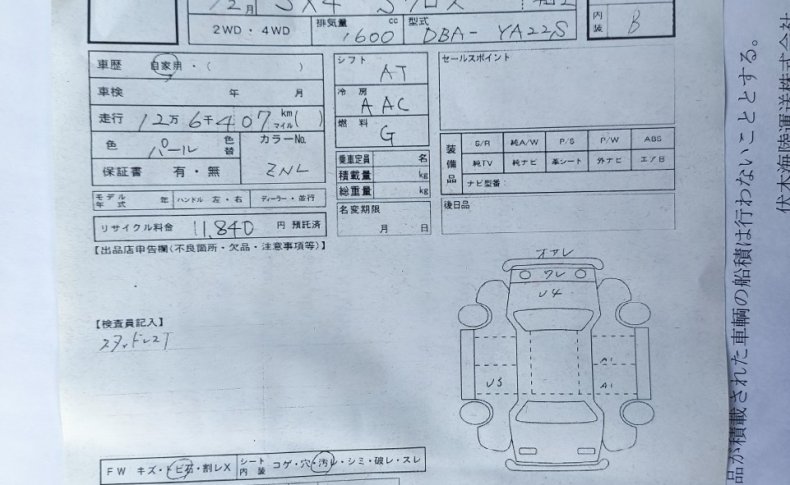 12月 SX4 Sクロス
2WD・4WD 排気量 1600 cc 型式 DBA- YA22S
内装 B
車歴 自家用・( )
車検 年 月
走行 12万6千407 km マイル( )
色 パール 色替 カラーNo. ZNL
保証書 有・無
モデル年式 年 ハンドル 左・右 ディーラー・並行
リサイクル料金 11,840 円 預託済
シフト AT
冷房 AAC
燃料 G
乗車定員 名
積載量 kg
総重量 kg
名変期限
月 日
セールスポイント
装備品 S/R 純A/W P/S P/W ABS
純TV 純ナビ 革シート 外ナビ エアB
ナビ型番:
後日品
【出品店申告欄(不良箇所・欠品・注意事項等)】
【検査員記入】
スタッドレスT
オワレ
ワレ
U4
A1
US
A1
FW キズ・トビ石・割レX シート内装 コゲ・穴・汚レ・シミ・破レ・スレ
品が積載された車輌の船積は行わないこととする。
伏木海陸運送株式会社